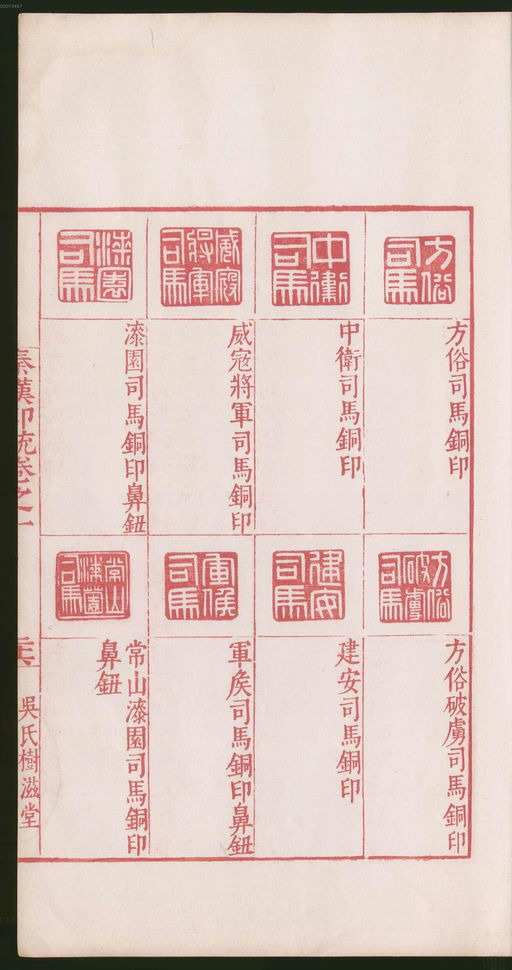 方俗司馬
方俗司馬銅印
中衛司馬
中衛司馬銅印
威寇將軍司馬銅印
漆園司馬
漆園司馬銅印鼻鈕
方俗破虜司馬銅印
建安司馬
建安司馬銅印
軍矦司馬
軍矦司馬銅印鼻鈕
常山漆園司馬
常山漆園司馬銅印
鼻鈕
秦漢印統卷之一
吳氏樹滋堂
00073457